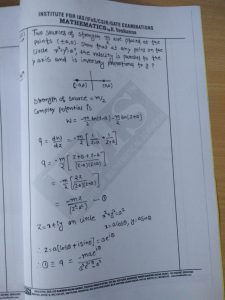 INSTITUTE FOR IAS/IFoS/CSIR/GATE EXAMINATIONS
MATHEMATICS by K. Venkanna
Two sources of strength m/2 are placed at the
points (±a,0) Show that at any point on the
circle x²+y²=a², the velocity is parallel to the
y axis and is inversely proportional to y ?
(-a,0) (a,0)
Strength of source = m/2
Complex potential is
W = -m/2 ln(z-a) - m/2 ln(z+a)
q = dw/dz = -m/2 [1/z-a + 1/z+a]
q = -m/2 [z+a+z-a/z²-a²]
= -m/2 [2z/z²-a²]
= -mz/(z²-a²) —①
z = x+iy on circle x²+y²=a²
x=a cosθ, y=a sinθ
∴ z = a[cosθ+i sinθ] = ae^iθ
∴ ① ⇒ q = -mae^iθ/a²e^2iθ-a²